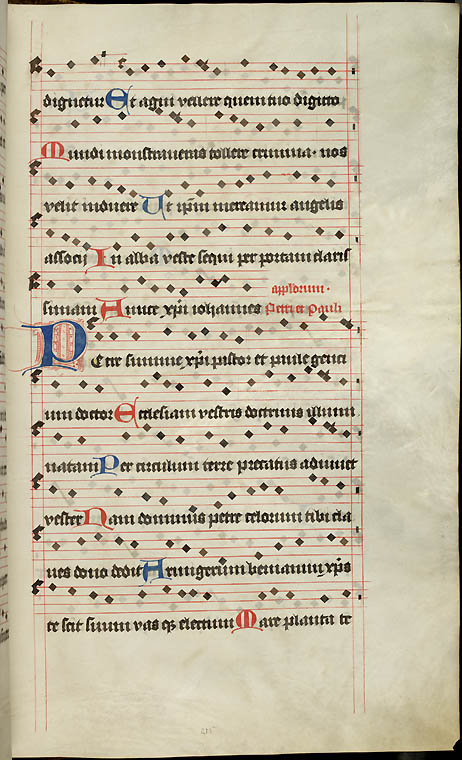 dignetur Et agni vellere quem tuo digito
Mundi monstraveras tollere crimina · nos
velit induere Ut ipm mereamur angelis
associj In alba veste sequi per portam claris
applorum ·
simam Amice xpi iohannes Petri et Pauli
Petre summe xpi pastor et paule genti
um doctor Ecclesiam vestris doctrinis illumi
natam Per circulum terre precatus adiuvet
vester Nam dominus petre celorum tibi cla
ves dono dedit Armigerum beniamin xps
te scit suum vas qz electum Mare planta te